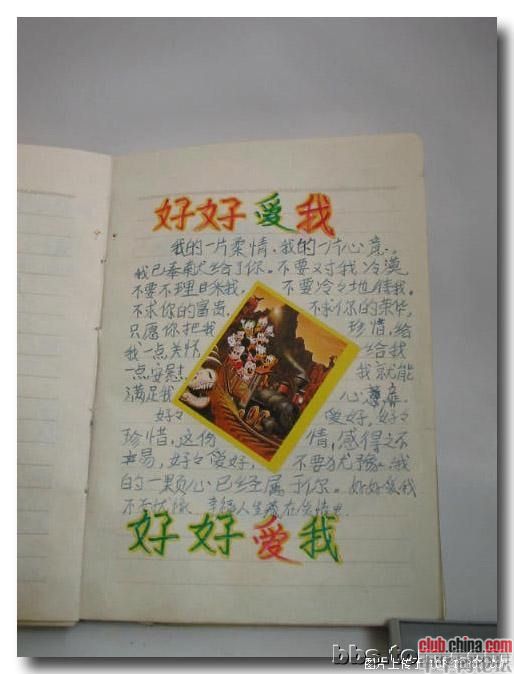 好好爱我
我的一片柔情、我的一片心意。
我已奉献给了你。不要对我冷漠
不要不理日采我。 不要冷冷地待我。
不求你的富贵, 不求你的荣华,
只愿你把我 珍惜,给
我一点关怀 给我
一点安慰 我就能
满足我 心意
好々 爱好,好々
珍惜,这份 情,感得之不
易,好々爱好, 不要犹豫,我
的一颗心已经属于你。好好爱我
不要犹豫 幸福人生
好好爱我
club.china.com
bbs.
图片上传于